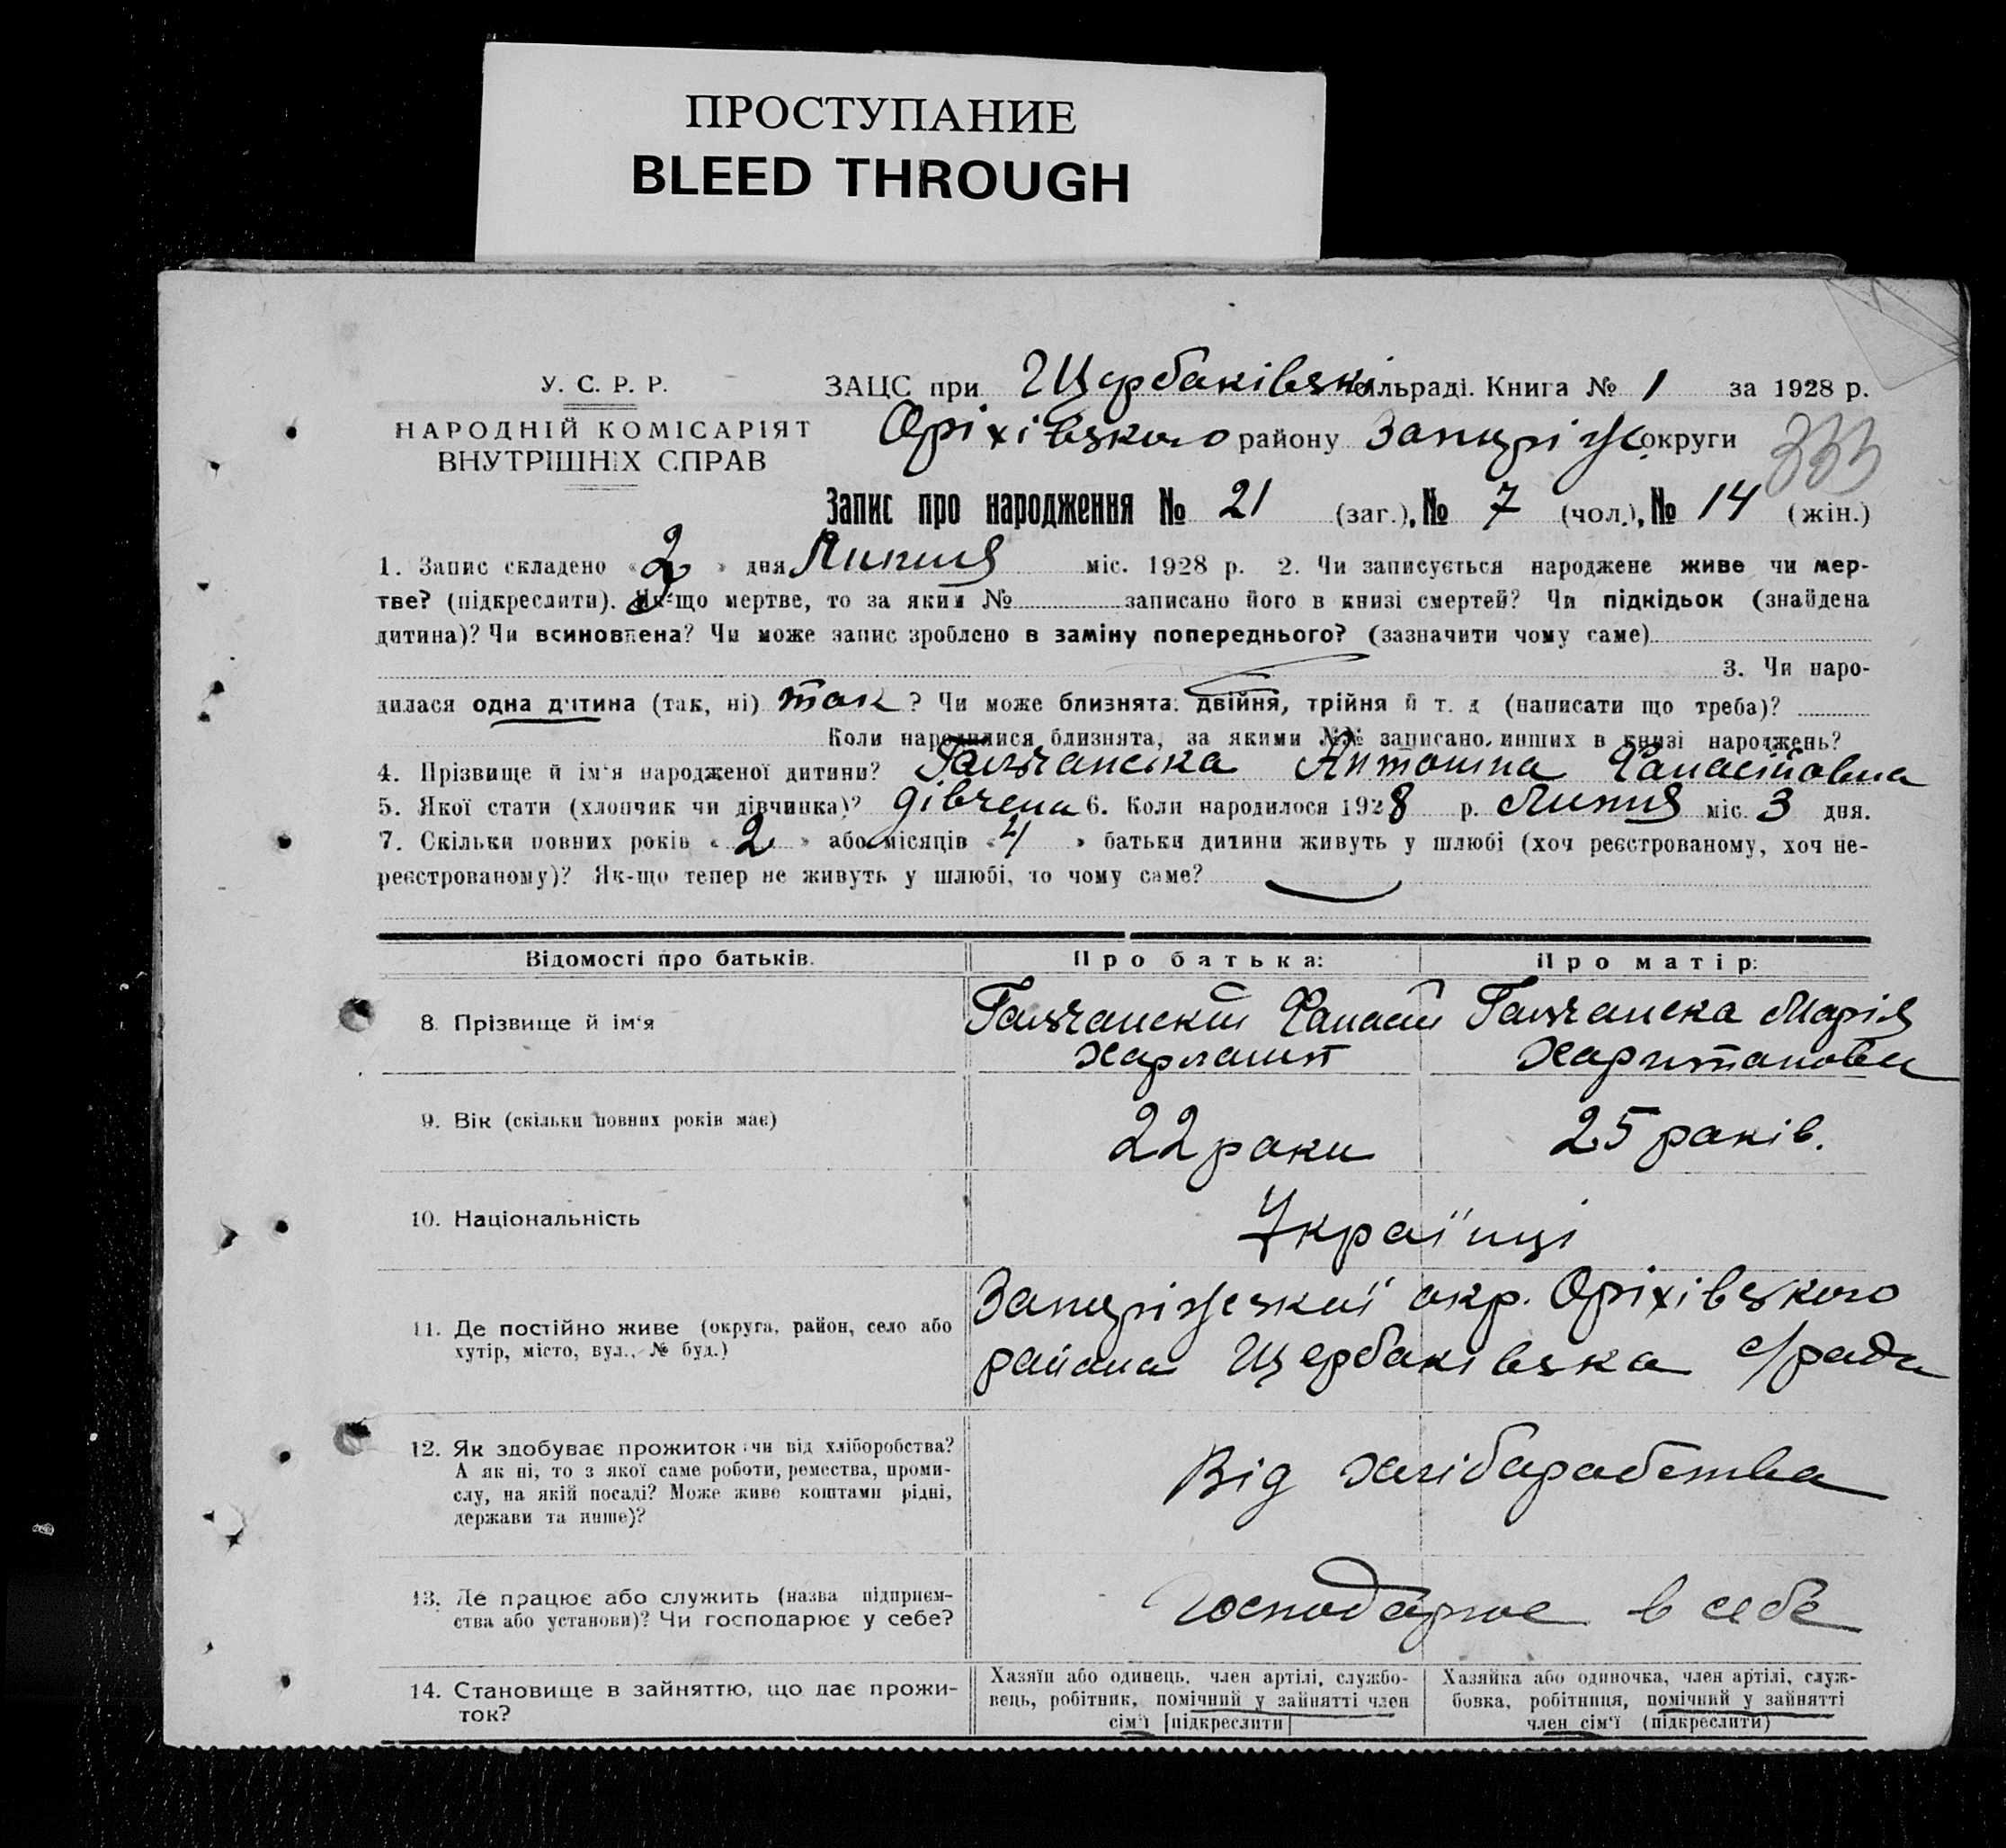 ПРОСТУПАНИЕ
BLEED THROUGH
У. С. Р. Р.
НАРОДНІЙ КОМІСАРІЯТ
ВНУТРІШНІХ СПРАВ
ЗАЦС при Щербаківські сільраді. Книга № 1 за 1928 р.
Оріхівського району Запоріж. округи
333
Запис про народження № 21 (заг.), № 7 (чол.), № 14 (жін.)
1. Запис складено «2» дня Липня міс. 1928 р. 2. Чи записується народжене живе чи мер-
тве? (підкреслити). Як-що мертве, то за яким № записано його в книзі смертей? Чи підкідьок (знайдена
дитина)? Чи всиновлена? Чи може запис зроблено в заміну попереднього? (зазначити чому саме)
3. Чи наро-
дилася одна дитина (так, ні) так ? Чи може близнята: двійня, трійня й т. д (написати що треба)?
Коли народилися близнята, за якими №№ записано инших в книзі народжень?
4. Прізвище й ім'я народженої дитини? Антоніна
5. Якої стати (хлопчик чи дівчинка)? дівчена 6. Коли народилося 1928 р. Липня міс. 3 дня.
7. Скільки повних років «2» або місяців «4» батьки дитини живуть у шлюбі (хоч реєстрованому, хоч не-
реєстрованому)? Як-що тепер не живуть у шлюбі, то чому саме?
Відомості про батьків.
Про батька:
Про матір:
8. Прізвище й ім'я
Марія
9. Вік (скільки повних років має)
22 роки
25 років.
10. Національність
Українці
11. Де постійно живе (округа, район, село або
хутір, місто, вул., № буд.)
окр. Оріхівського
района Щербаківська с/рада
12. Як здобуває прожиток: чи від хліборобства?
А як ні, то з якої саме роботи, ремества, проми-
слу, на якій посаді? Може живе коштами рідні,
держави та инше)?
Від хлібарабства
13. Де працює або служить (назва підприєм-
ства або установи)? Чи господарює у себе?
Господарює в себе
14. Становище в зайняттю, що дає прожи-
ток?
Хазяїн або одинець, член артілі, службо-
вець, робітник, помічний у зайнятті член
сім'ї [підкреслити]
Хазяйка або одиночка, член артілі, служ-
бовка, робітниця, помічний у зайнятті
член сім'ї (підкреслити)